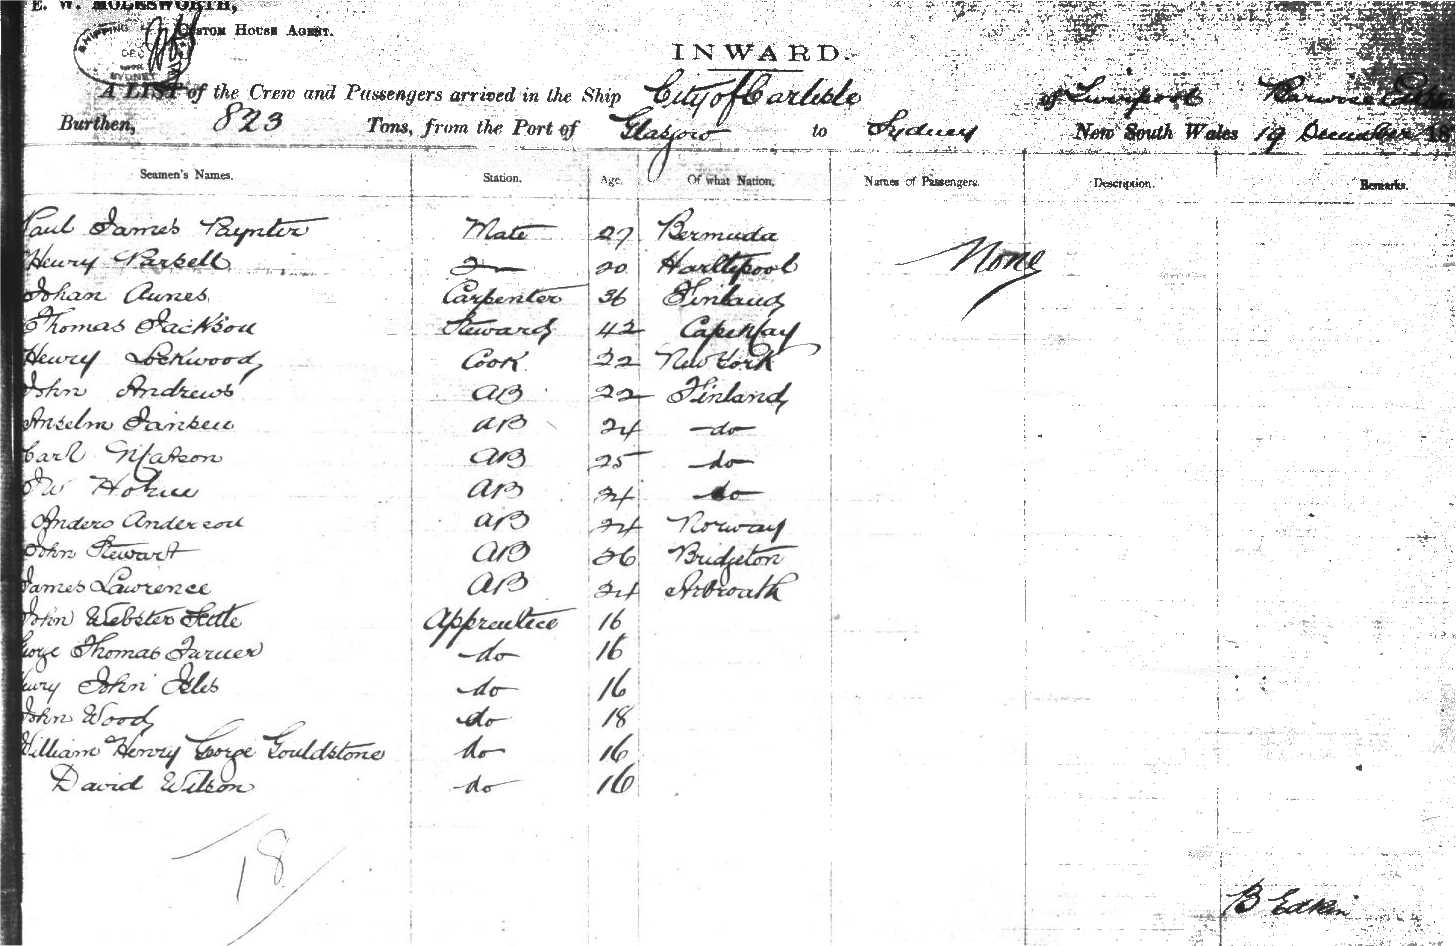 E. W. MOLESWORTH,
CUSTOM HOUSE AGENT.
SHIPPING
SYDNEY
INWARD.
A LIST of the Crew and Passengers arrived in the Ship City of Carlisle of Liverpool
Burthen, 823 Tons, from the Port of Glasgow to Sydney New South Wales 19 December 18
Seamen's Names. Station. Age. Of what Nation. Names of Passengers. Description. Remarks.
Paul James Paynter Mate 27 Bermuda
Henry 2 20 Hartlepool None
Johan Carpenter 36 Finland
Thomas Jackson Steward 42 Cape May
Henry Lockwood Cook 22 New York
John Andrews AB 22 Finland
Anselm Jansen AB 24 do
Carl Matson AB 25 do
AB 24 do
Anders Anderson AB 24 Norway
John Stewart AB 26 Bridgeton
James Lawrence AB 24 Arbroath
John Webster Apprentice 16
George Thomas Turner do 16
Henry John Isles do 16
John Wood do 18
William Henry George Gouldstone do 16
David Wilson do 16
18
B Edkin